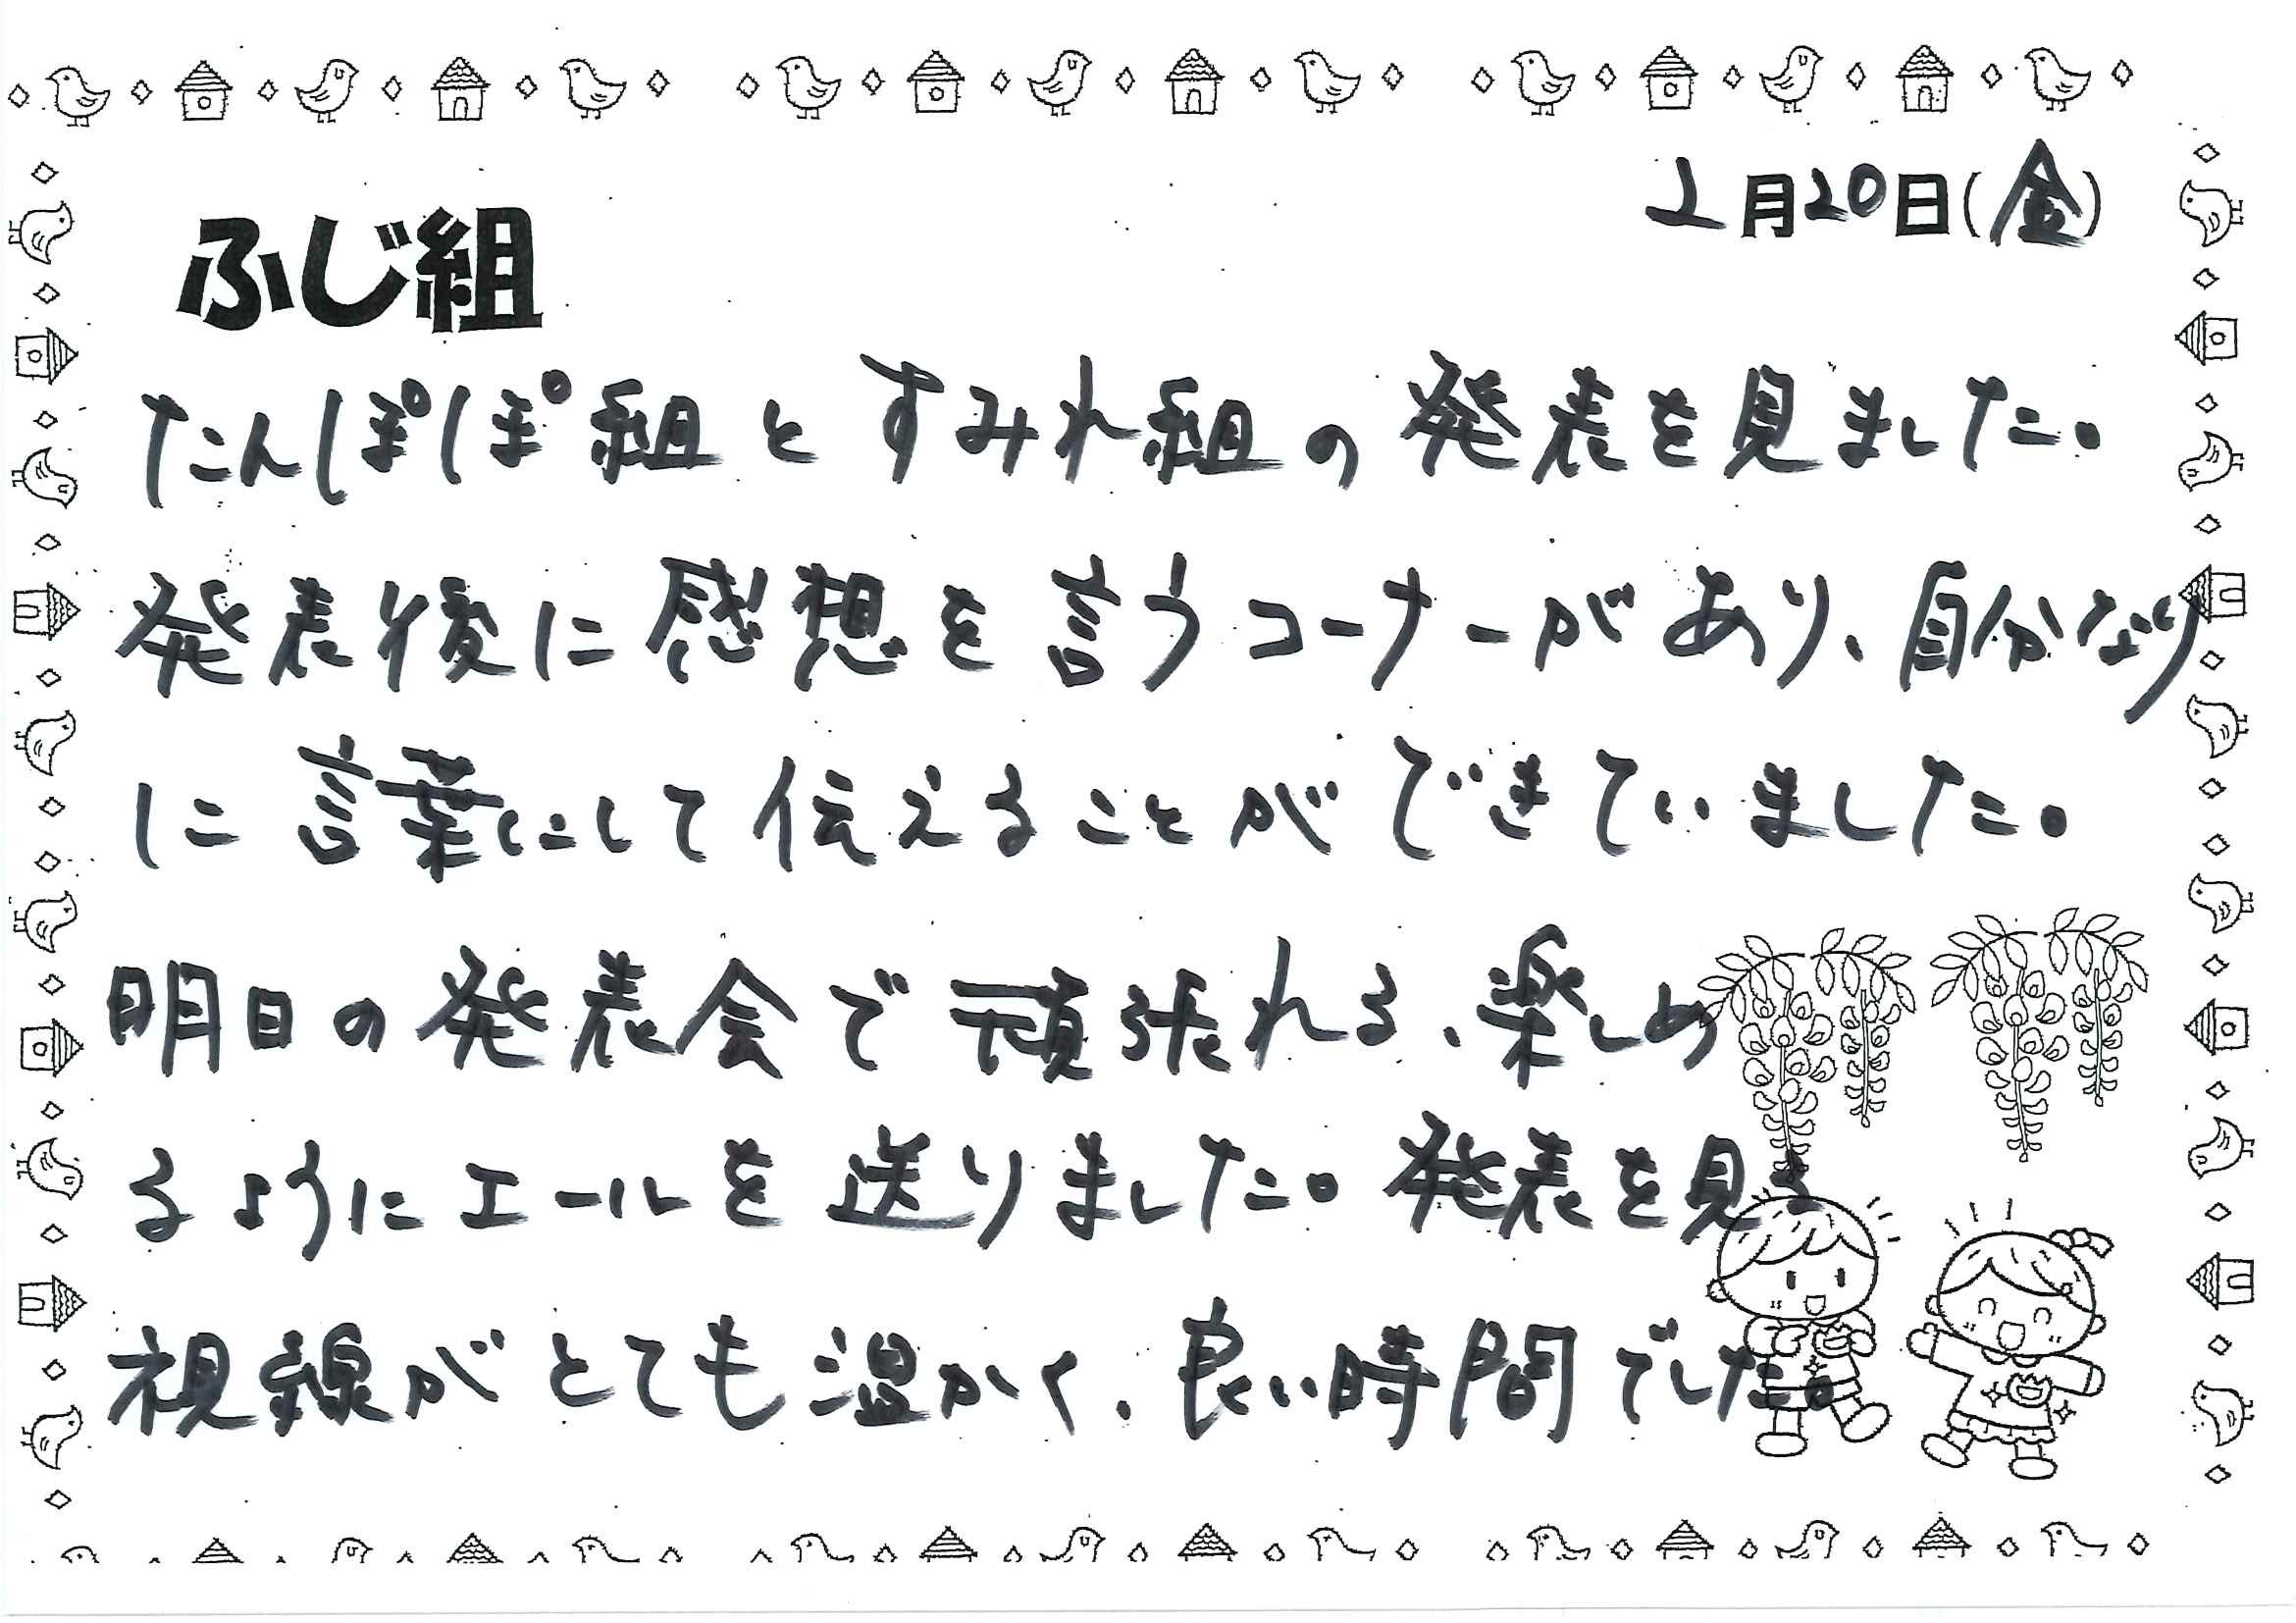 2月20日(金)
ふじ組
たんぽぽ組とすみれ組の発表を見ました。
発表後に感想を言うコーナーがあり、自分なり
に言葉にして伝えることができていました。
明日の発表会で頑張れる、楽しめ
るようにエールを送りました。発表を見る
視線がとても温かく、良い時間でした。